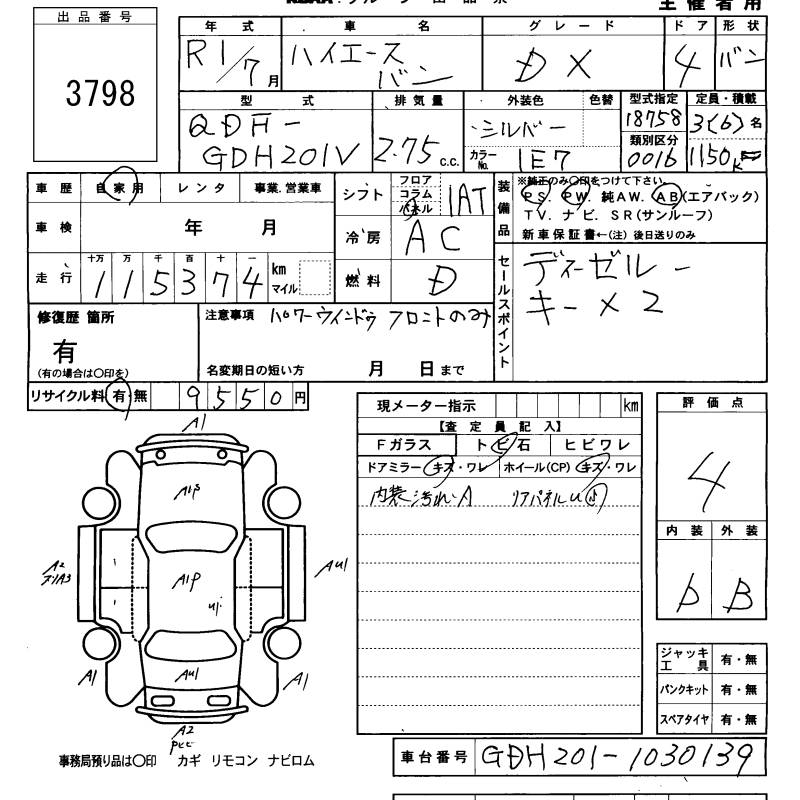 主催者用
出品番号
3798
年式 車名 グレード ドア 形状
R1/7月 ハイエースバン DX 4 バン
型式 排気量 外装色 色替 型式指定 定員・積載
QDF-GDH201V 2.75c.c. シルバー 18758 3(6)名
カラーNo. 1E7 類別区分 0016 1150K
車歴 自家用 レンタ 事業.営業車
シフト フロア コラム パネル 1AT
装備品 ※純正のみ〇印をつけて下さい
PS. PW. 純AW. AB(エアバック)
TV. ナビ. SR(サンルーフ)
新車保証書←(注) 後日送りのみ
車検 年 月
冷房 AC
走行 十万 万 千 百 十 一
115374 km マイル
燃料 D
セールスポイント
ディーゼルー
キー×2
修復歴 箇所
有
(有の場合は〇印を)
注意事項 パワーウインドゥ フロントのみ
名変期日の短い方 月 日まで
リサイクル料 有・無 9550円
現メーター指示 km
【査定員記入】
Fガラス トビ石 ヒビワレ
ドアミラー キズ・ワレ ホイール(CP) キズ・ワレ
内装汚れA リアパネルU
評価点
4
内装 外装
D B
A1
A1
A1P
A2
A1
A1
AU1
AU1
A2
ジャッキ工具 有・無
パンクキット 有・無
スペアタイヤ 有・無
事務局預り品は〇印 カギ リモコン ナビロム
車台番号 GDH201-1030139